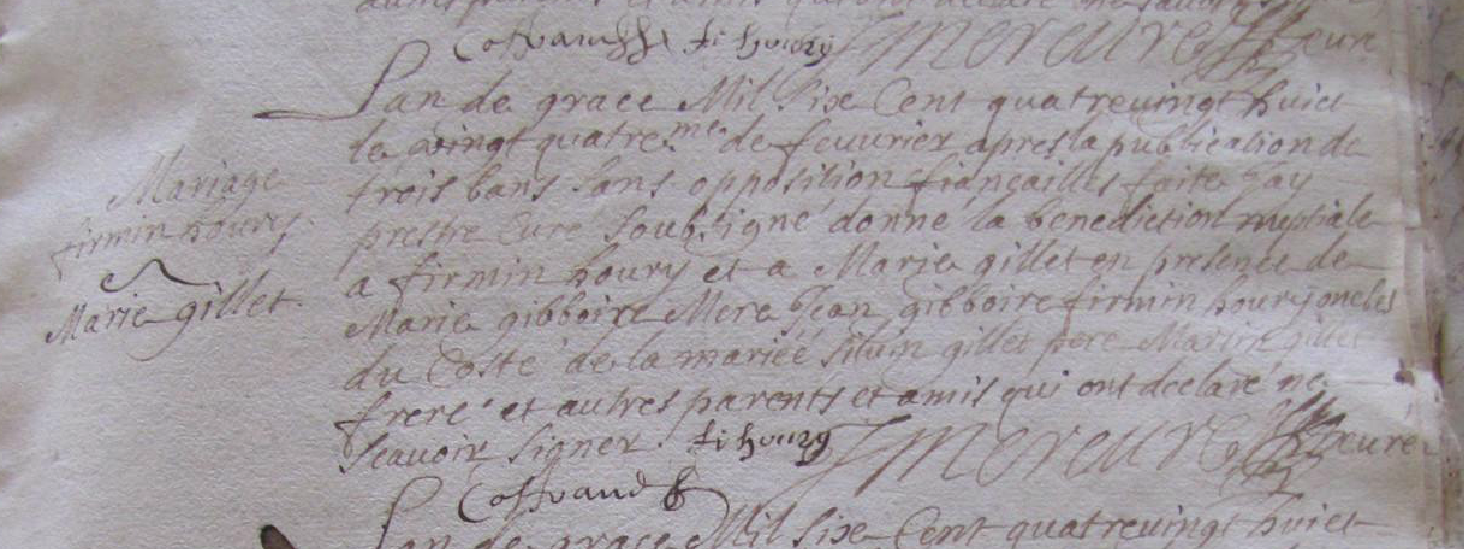 fi houry Mercure Cure
Lan de grace Mil Six Cent quatrevingt huict
le vingt quatre.me de fevurier apres la publication de
trois bans sans opposition fiançailles faite Jay
Mariage
prestre Curé Soubsigné donné la benediction nuptiale
firmin houry.
a firmin houry et a Marie gillet en presence de
et
Marie gillet.
Marie gibboire Mere Jean gibboire firmin houry oncles
du Costé de la mariéé gillet pere Martin gillet
frere et autres parents et amis qui ont declaré ne
scavoir signer. fi houry Mercure Cure
Lan de grace Mil Six Cent quatrevingt huict